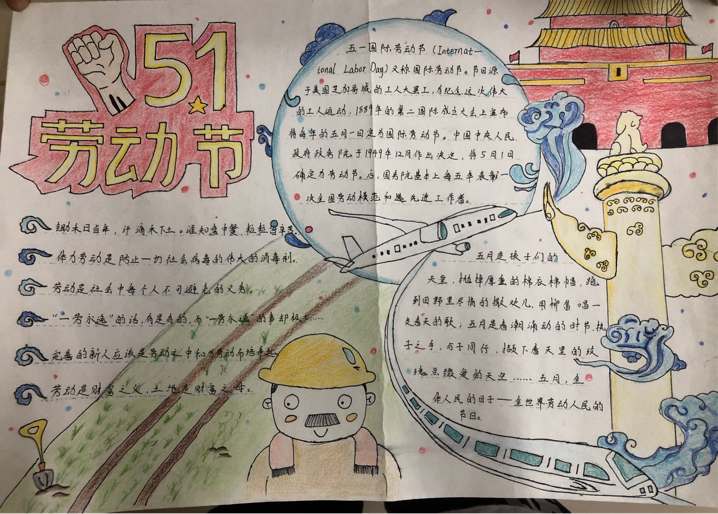 5.1
劳动节
五一国际劳动节(Internat-
ional Labor Day)又称国际劳动节。节日源
于美国芝加哥城的工人大罢工,为纪念这次伟大
的工人运动,1889年的第二国际成立大会上宣布
将每年的五月一日定为国际劳动节。中国中央人民
政府政务院于1949年12月作出决定,将5月1日
确定为劳动节。后,国务院基本上每五年表彰一
次全国劳动模范和先进工作者。
锄禾日当午,汗滴禾下土。谁知盘中餐,粒粒
体力劳动是防止一切社会病毒的伟大的消毒剂。
劳动是社会中每个人不可避免的义务。
“一劳永逸”的话,有是有的,而“一劳永逸”的事却极
完善的新人应该是劳动之中和为劳动而培
劳动是财富之父,土地是财富之母。
五月是孩子们的
天空,抛掉厚重的棉衣棉帽,跑
到田野里尽情的撒处儿,用柳笛唱一
支春天的歌;五月是春潮涌动的时节,执
子之手,与子同行,撒下春天里的玫
瑰点缀爱的天空……五月,全
世界劳动人民的
节日。